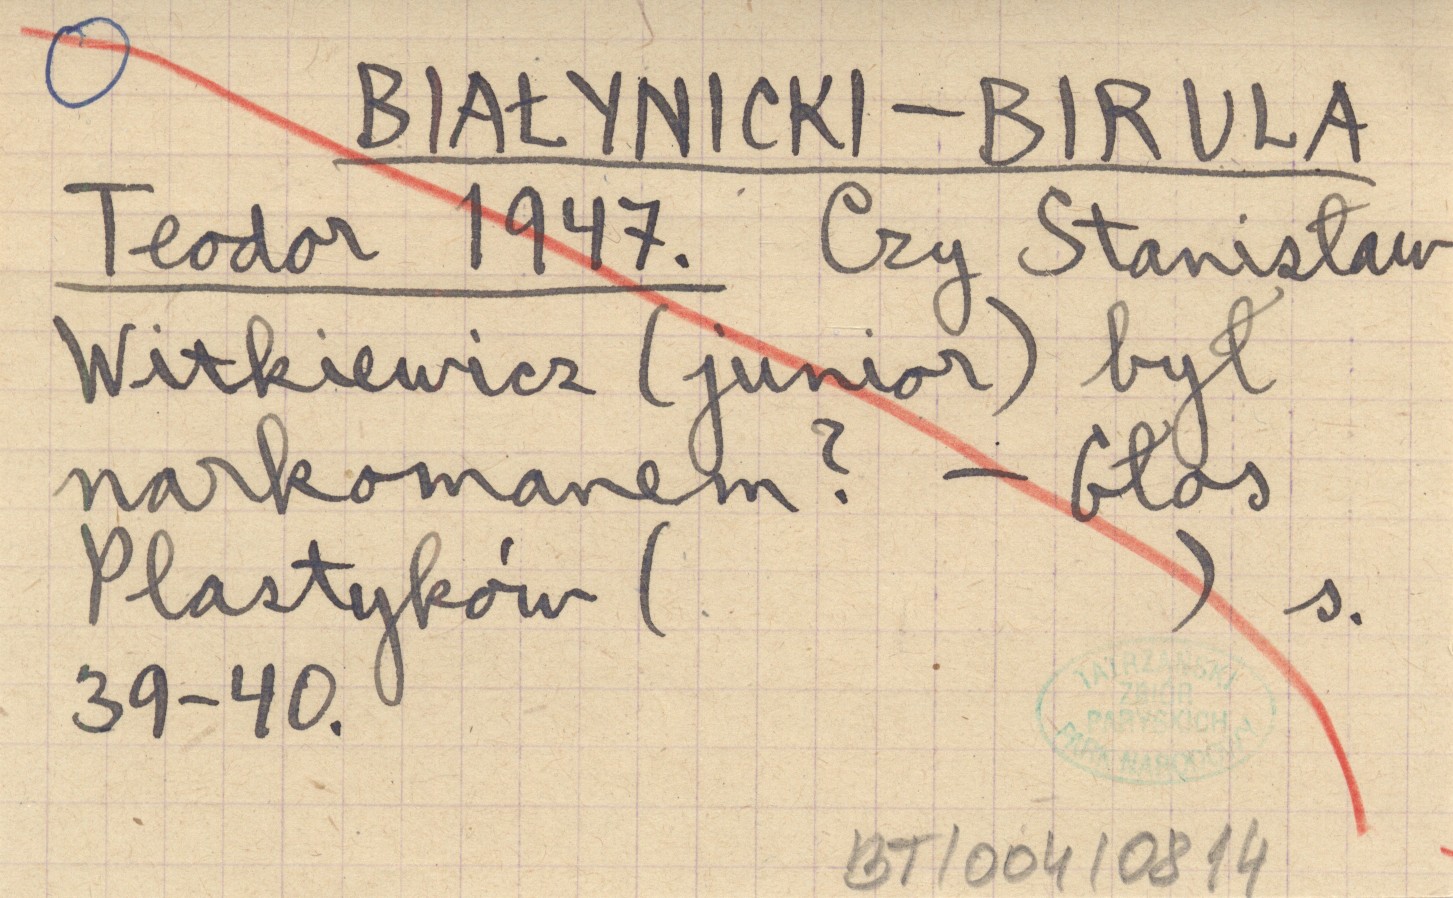 BIAŁYNICKI-BIRULA
Teodor 1947. Czy Stanisław
Witkiewicz (junior) był
narkomanem? - Głos
Plastyków ( ) s.
39-40.
TATRZAŃSKI
ZBIÓR
PARYSKICH
PARK NARODOWY
BT/004/0814